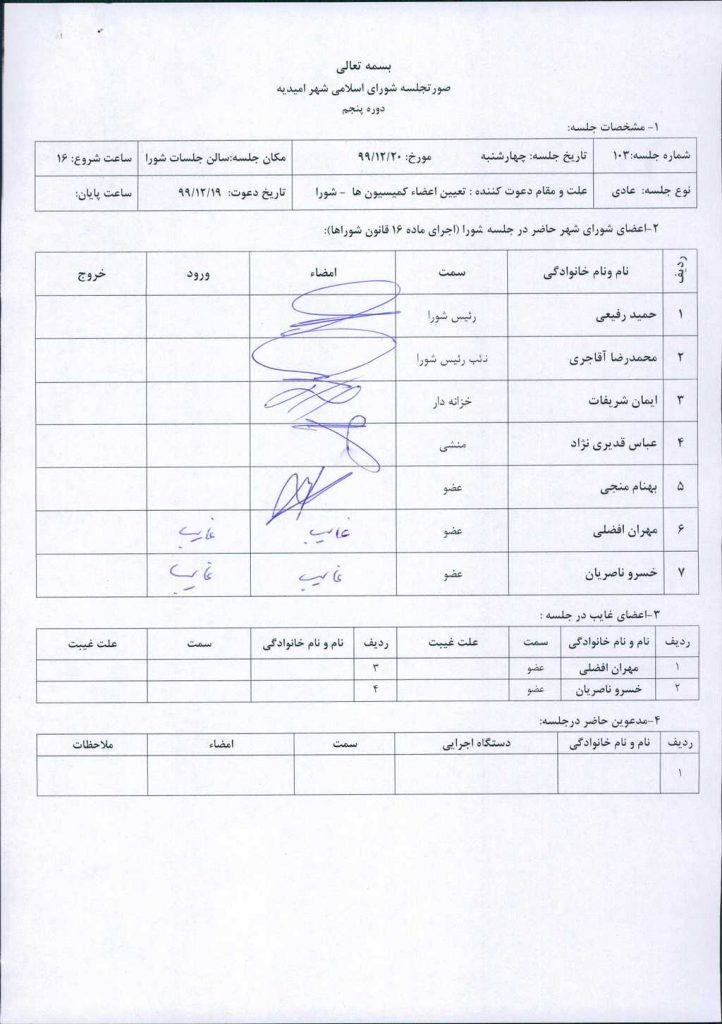 بسمه تعالی
صورتجلسه شورای اسلامی شهر امیدیه
دوره پنجم
۱- مشخصات جلسه:
شماره جلسه:۱۰۳ تاریخ جلسه: چهارشنبه مورخ: ۹۹/۱۲/۲۰ مکان جلسه:سالن جلسات شورا ساعت شروع: ۱۶
نوع جلسه: عادی علت و مقام دعوت کننده : تعیین اعضاء کمیسیون ها - شورا تاریخ دعوت: ۹۹/۱۲/۱۹ ساعت پایان:
۲-اعضای شورای شهر حاضر در جلسه شورا (اجرای ماده ۱۶ قانون شوراها):
ردیف نام ونام خانوادگی سمت امضاء ورود خروج
۱ حمید رفیعی رئیس شورا
۲ محمدرضا آقاجری نائب رئیس شورا
۳ ایمان شریفات خزانه دار
۴ عباس قدیری نژاد منشی
۵ بهنام منجی عضو
۶ مهران افضلی عضو غایب غایب
۷ خسرو ناصریان عضو غایب غایب
۳-اعضای غایب در جلسه :
ردیف نام و نام خانوادگی سمت علت غیبت ردیف نام و نام خانوادگی سمت علت غیبت
۱ مهران افضلی عضو ۳
۲ خسرو ناصریان عضو ۴
۴-مدعوین حاضر درجلسه:
ردیف نام و نام خانوادگی دستگاه اجرایی سمت امضاء ملاحظات
۱